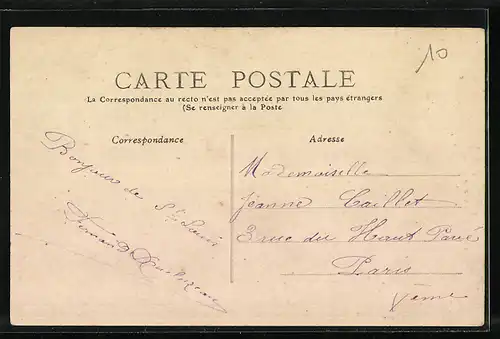 10
CARTE POSTALE
La Correspondance au recto n'est pas acceptée par tous les pays étrangers
(Se renseigner à la Poste
Correspondance
Adresse
Bonjour de St
Fernand
Mademoiselle
Jeanne Caillet
3 rue du Haut Pavé
Paris
Vème